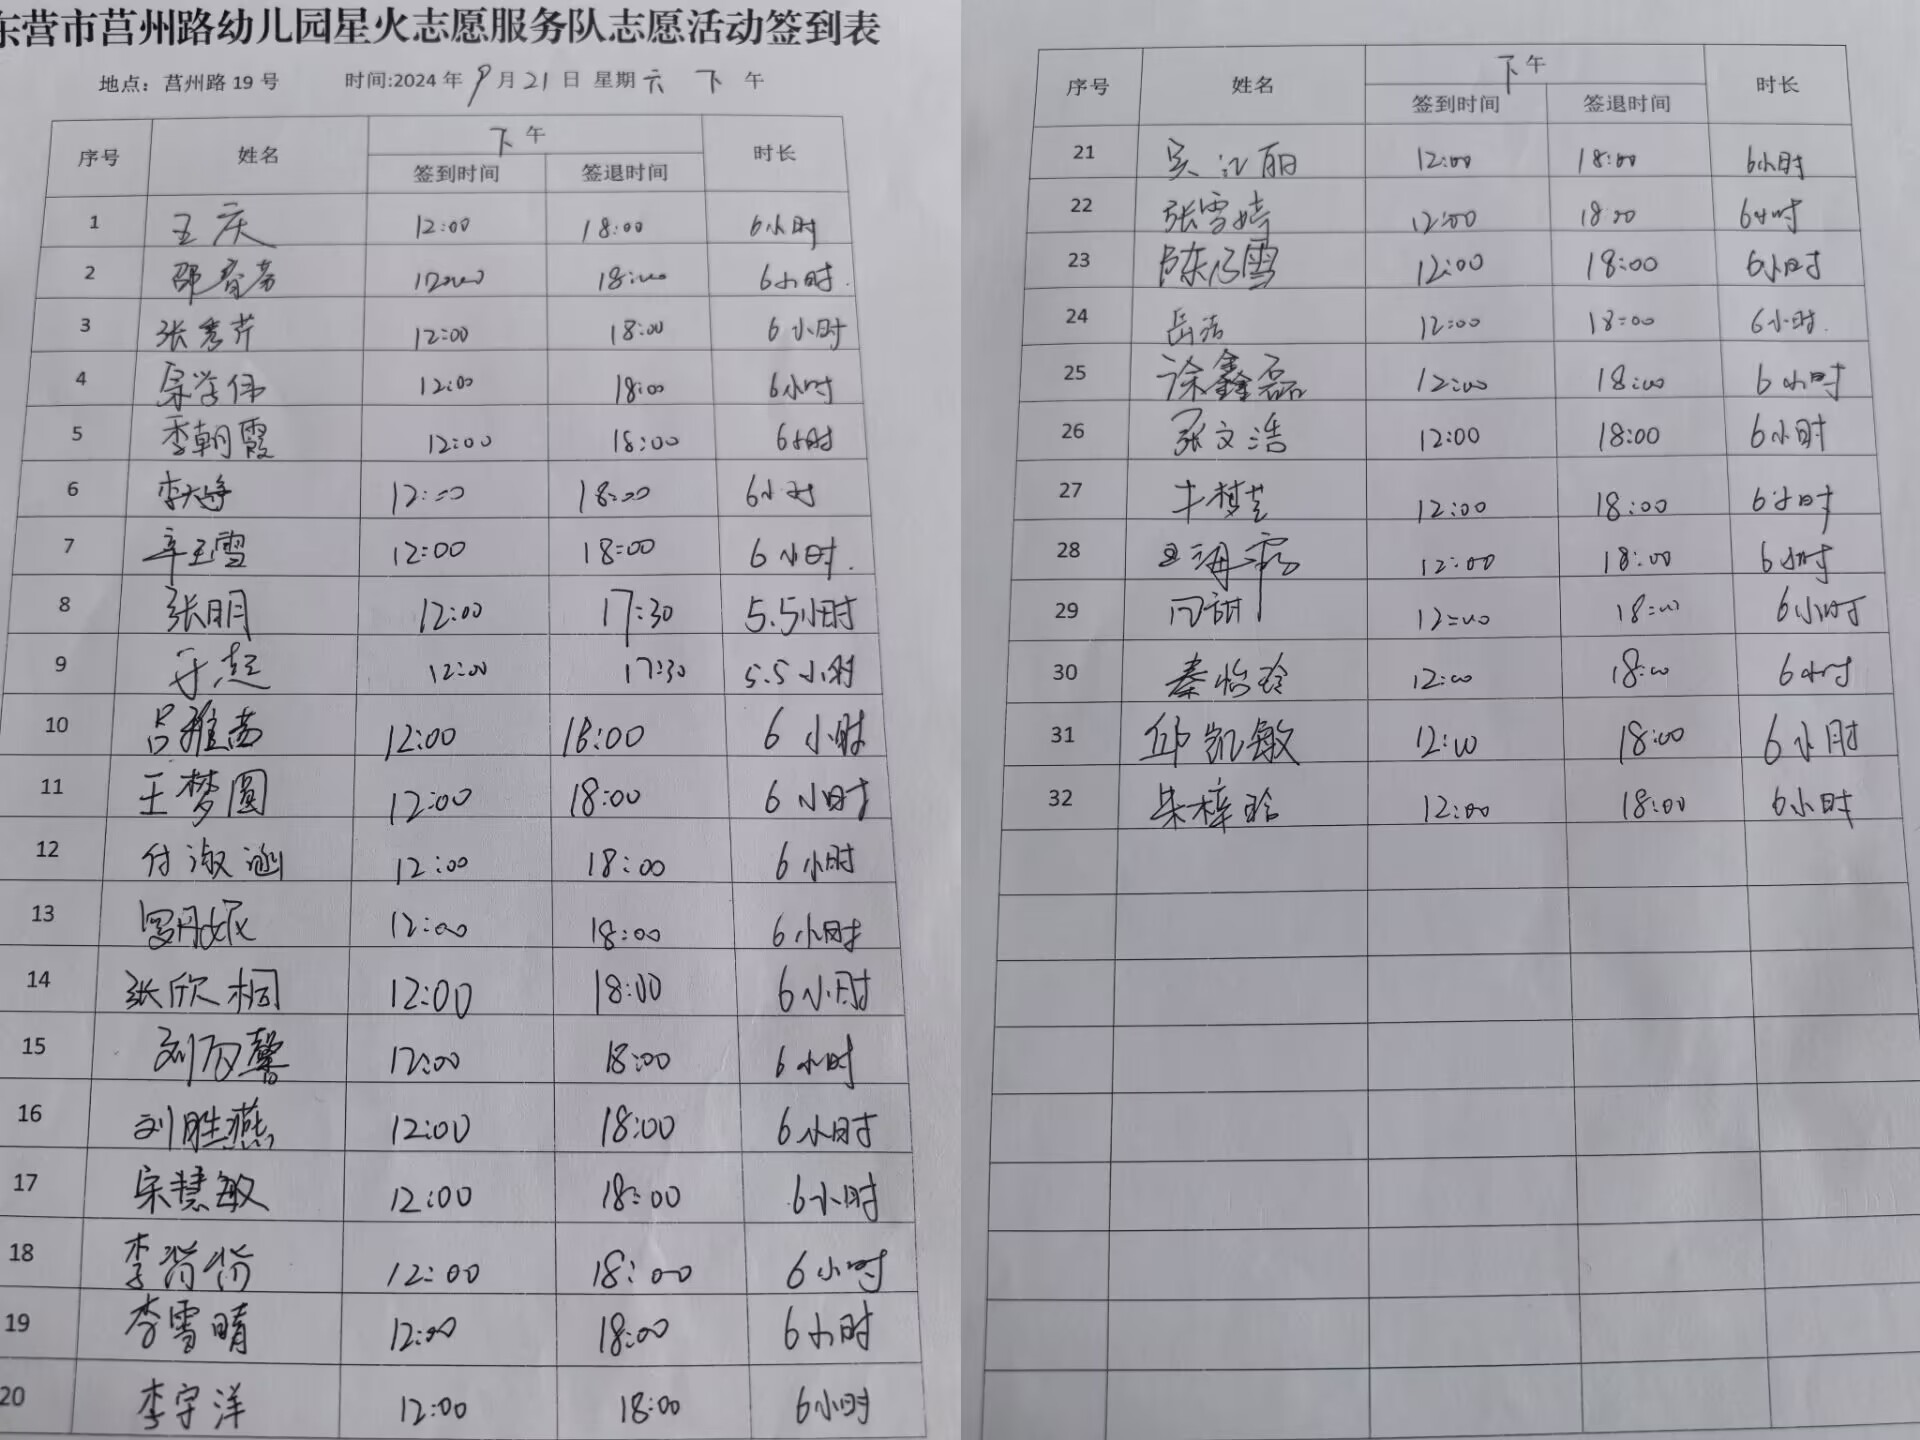 东营市莒州路幼儿园星火志愿服务队志愿活动签到表
地点：莒州路 19 号 时间:2024 年 9 月 21 日 星期 六 下 午
序号 姓名 下午 时长
签到时间 签退时间
1 王庆 12:00 18:00 6小时
2 邵春芳 12:00 18:00 6小时.
3 张秀芹 12:00 18:00 6小时
4 宋学伟 12:00 18:00 6小时
5 李朝霞 12:00 18:00 6小时
6 李大峥 12:00 18:00 6小时
7 辛玉雪 12:00 18:00 6小时.
8 张明月 12:00 17:30 5.5小时
9 于超 12:00 17:30 5.5小时
10 吕雅茜 12:00 18:00 6小时
11 王梦圆 12:00 18:00 6小时
12 付淑涵 12:00 18:00 6小时
13 罗丹妮 12:00 18:00 6小时
14 张欣桐 12:00 18:00 6小时
15 刘方馨 12:00 18:00 6小时
16 刘胜燕 12:00 18:00 6小时
17 宋慧敏 12:00 18:00 6小时
18 李 12:00 18:00 6小时
19 李雪晴 12:00 18:00 6小时
20 李宇洋 12:00 18:00 6小时
序号 姓名 下午 时长
签到时间 签退时间
21 吴江丽 12:00 18:00 6小时
22 张雪婷 12:00 18:00 6小时
23 陈乃雪 12:00 18:00 6小时
24 岳洁 12:00 18:00 6小时.
25 徐鑫磊 12:00 18:00 6小时
26 张文浩 12:00 18:00 6小时
27 牛梦芝 12:00 18:00 6小时
28 王海霞 12:00 18:00 6小时
29 闫甜 12:00 18:00 6小时
30 秦怡玲 12:00 18:00 6小时
31 邱凯敏 12:00 18:00 6小时
32 朱梓晗 12:00 18:00 6小时